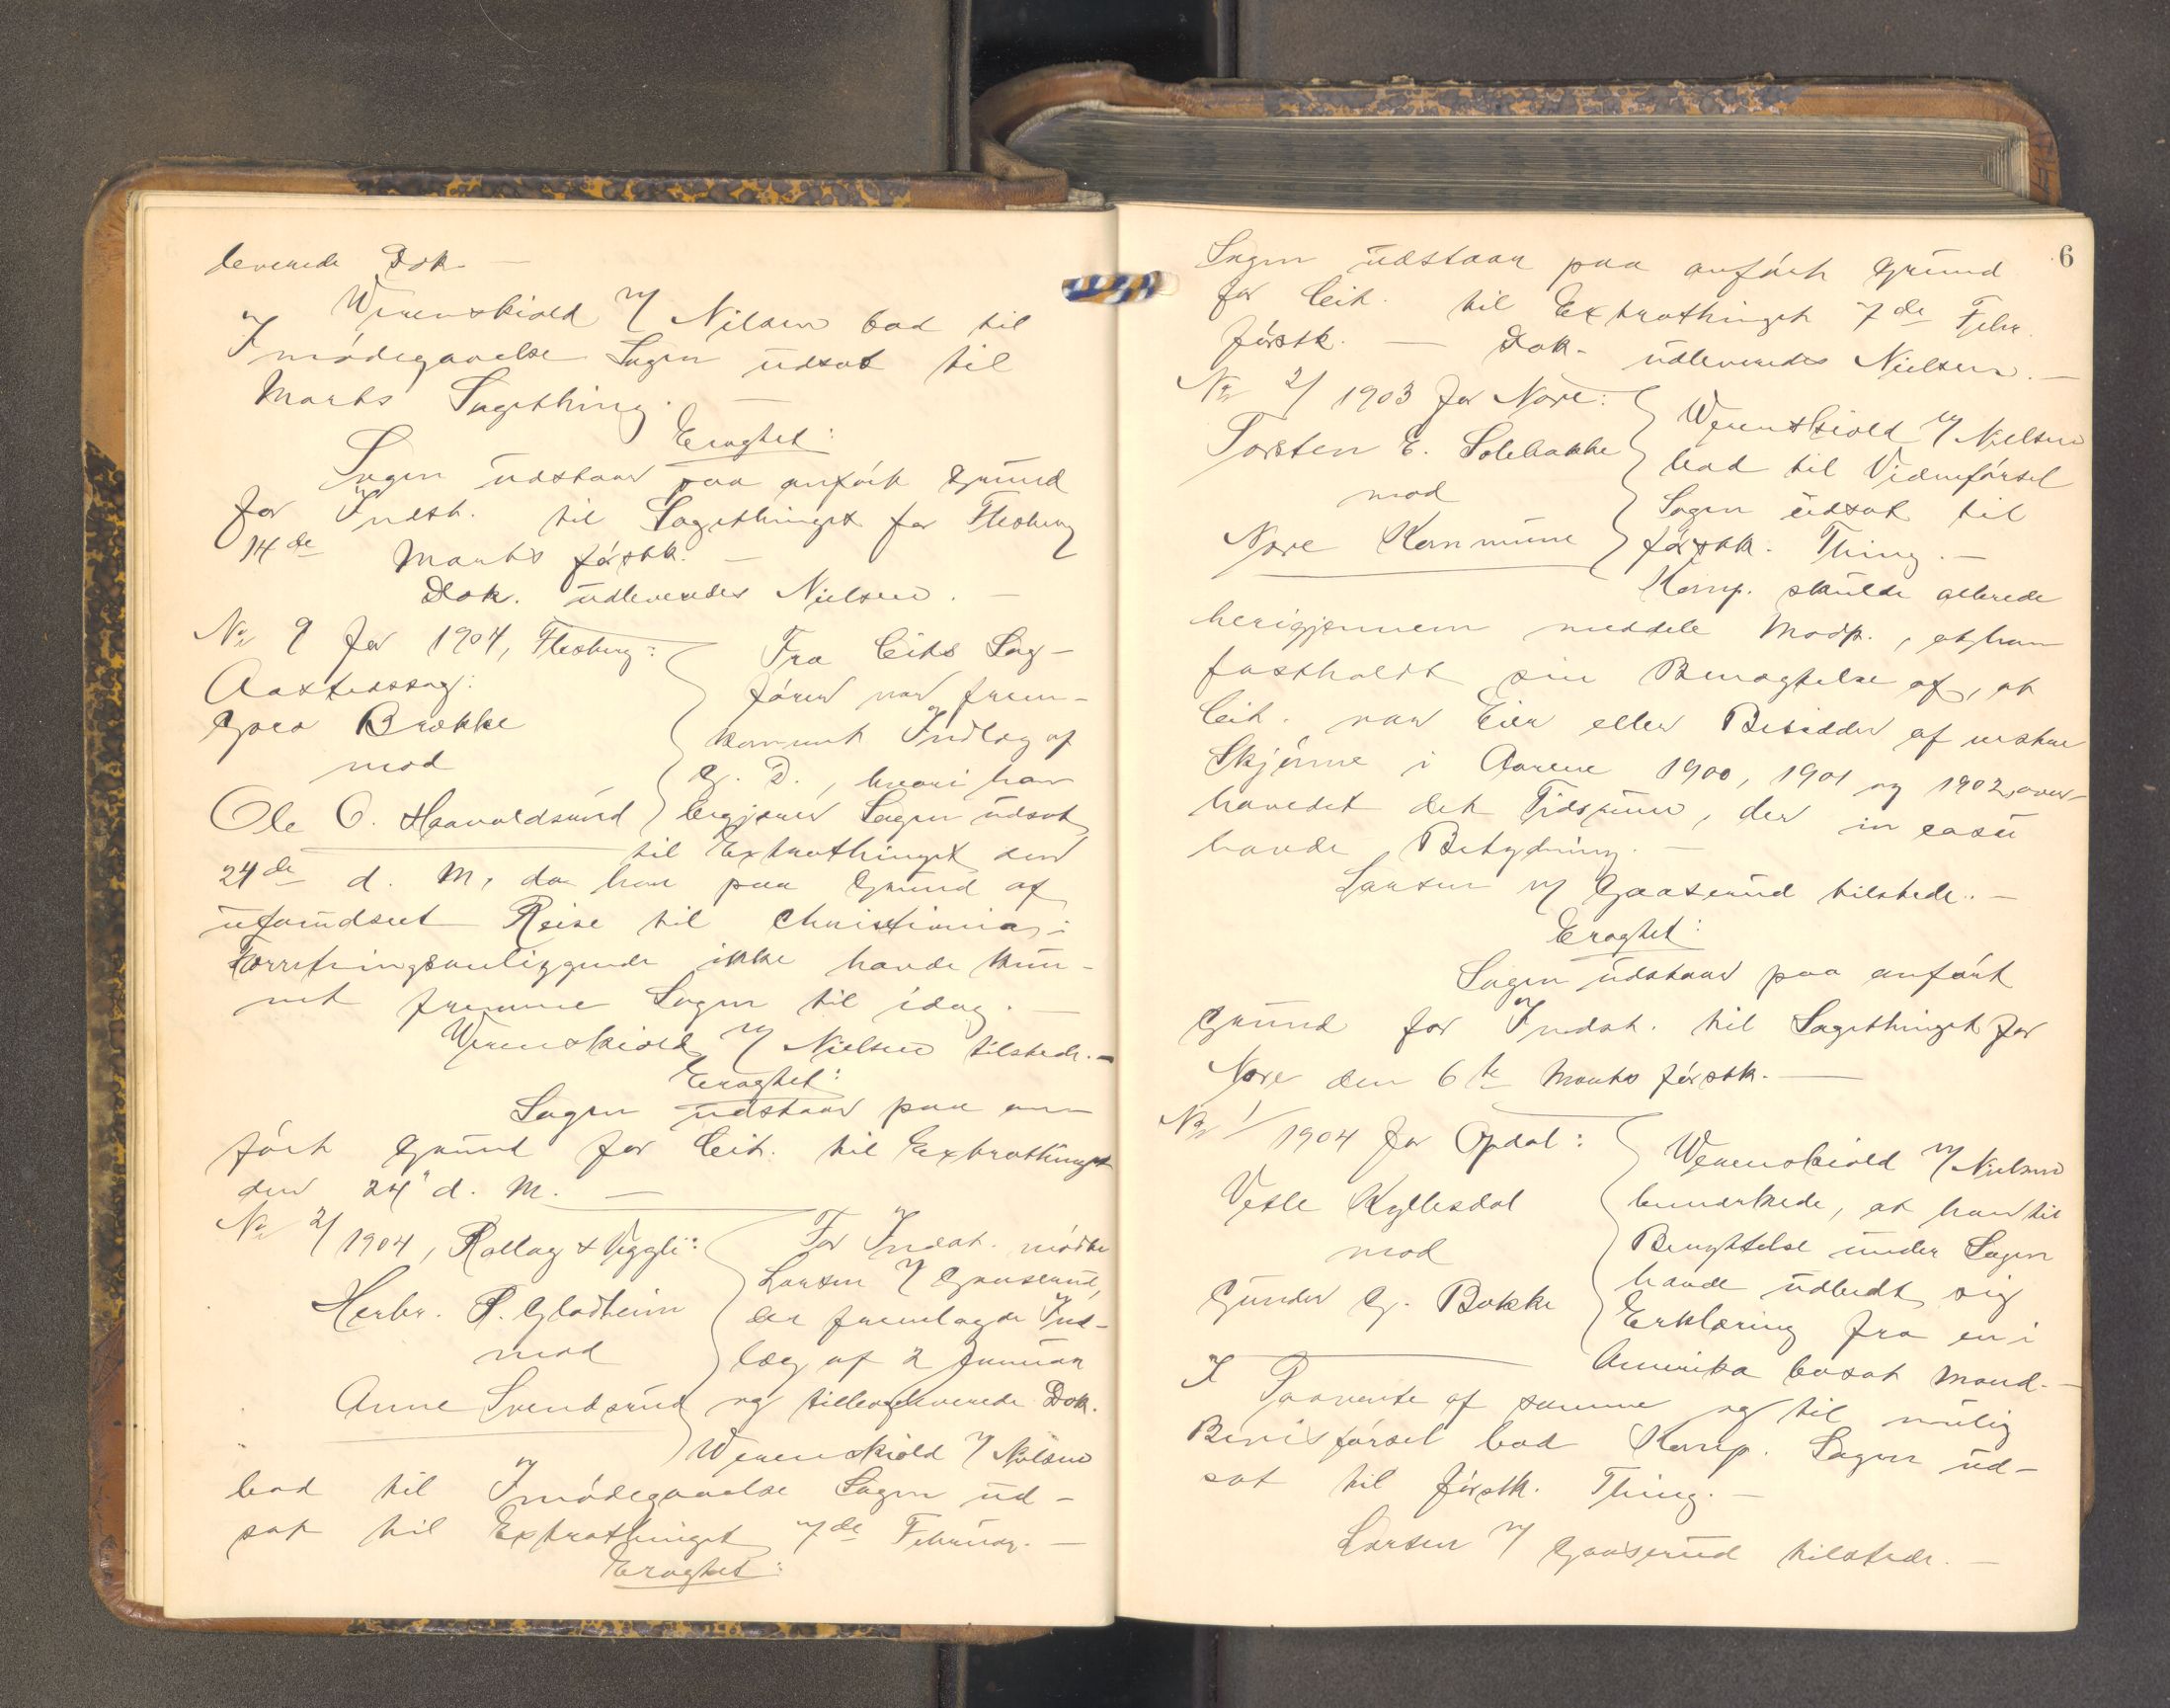 leverede Dok. —
Werenskiold v/ Nielsen bad til
Imødegaaelse Sagen udsat til
Marts Sagething. —
Eragtet:
Sagen udstaar paa anført Grund
for Indst. til Sagethinget for Flesberg
14de Marts førstk. —
Dok. udleveredes Nielsen. —
No 9 for 1904, Flesberg:
Aastedssag:
Gro Brække
mod
Ole O. Haavaldsrud
Fra Cits Sag-
fører var frem-
kommet Indlæg af
G. D., hvori han
begjærer Sagen udsat
til Extrathinget den
24de d. M., da han paa Grund af
uforudseet Reise til Christiania i
Forretningsanliggende ikke havde kun-
net fremme Sagen til idag. —
Werenskiold v/ Nielsen tilstede. —
Eragtet:
Sagen udstaar paa an-
ført Grund for Cit. til Extrathinget
den 24 d. M. —
No 2/1904, Rollag & Veggli:
Herbr. P. Gladheim
mod
Anne Svendsrud
For Indst. mødte
Larsen v/ Gaaserud,
der fremlagde Ind-
læg af 2 Januar
og tilbageleverede Dok.
Werenskiold v/ Nielsen
bad til Imødegaaelse Sagen ud-
sat til Extrathinget 7de Februar. —
Eragtet:
6
Sagen udstaar paa anført Grund
for Cit. til Extrathinget 7de Febr.
førstk. — Dok. udleveredes Nielsen. —
No 2/1903 for Nore:
Torsten E. Solebakke
mod
Nore Kommune
Werenskiold v/ Nielsen
bad til Vidneførsel
Sagen udsat til
førstk. Thing. —
Komp. skulde allerede
herigjennem meddele Modp., at han
fastholdt sin Benægtelse af, at
Cit. var Eier eller Besidder af
Skjønne i Aarene 1900, 1901 og 1902, over-
havedet det Tidsrum, der in casu
havde Betydning. —
Larsen v/ Gaaserud tilstede. —
Eragtet:
Sagen udstaar paa anført
Grund for Indst. til Sagethinget for
Nore den 6te Marts førstk. —
No 1/1904 for Opdal:
Vesle Kyllesdal
mod
Gunder G. Bakke
Werenskiold v/ Nielsen
bemærkede, at han til
Benyttelse under Sagen
havde udbedt sig
Erklæring fra en i
Amerika bosat Mand. —
I Paavente af samme og til mulig
Bevisførsel bad Komp. Sagen ud-
sat til førstk. Thing. —
Larsen v/ Gaaserud tilstede. —